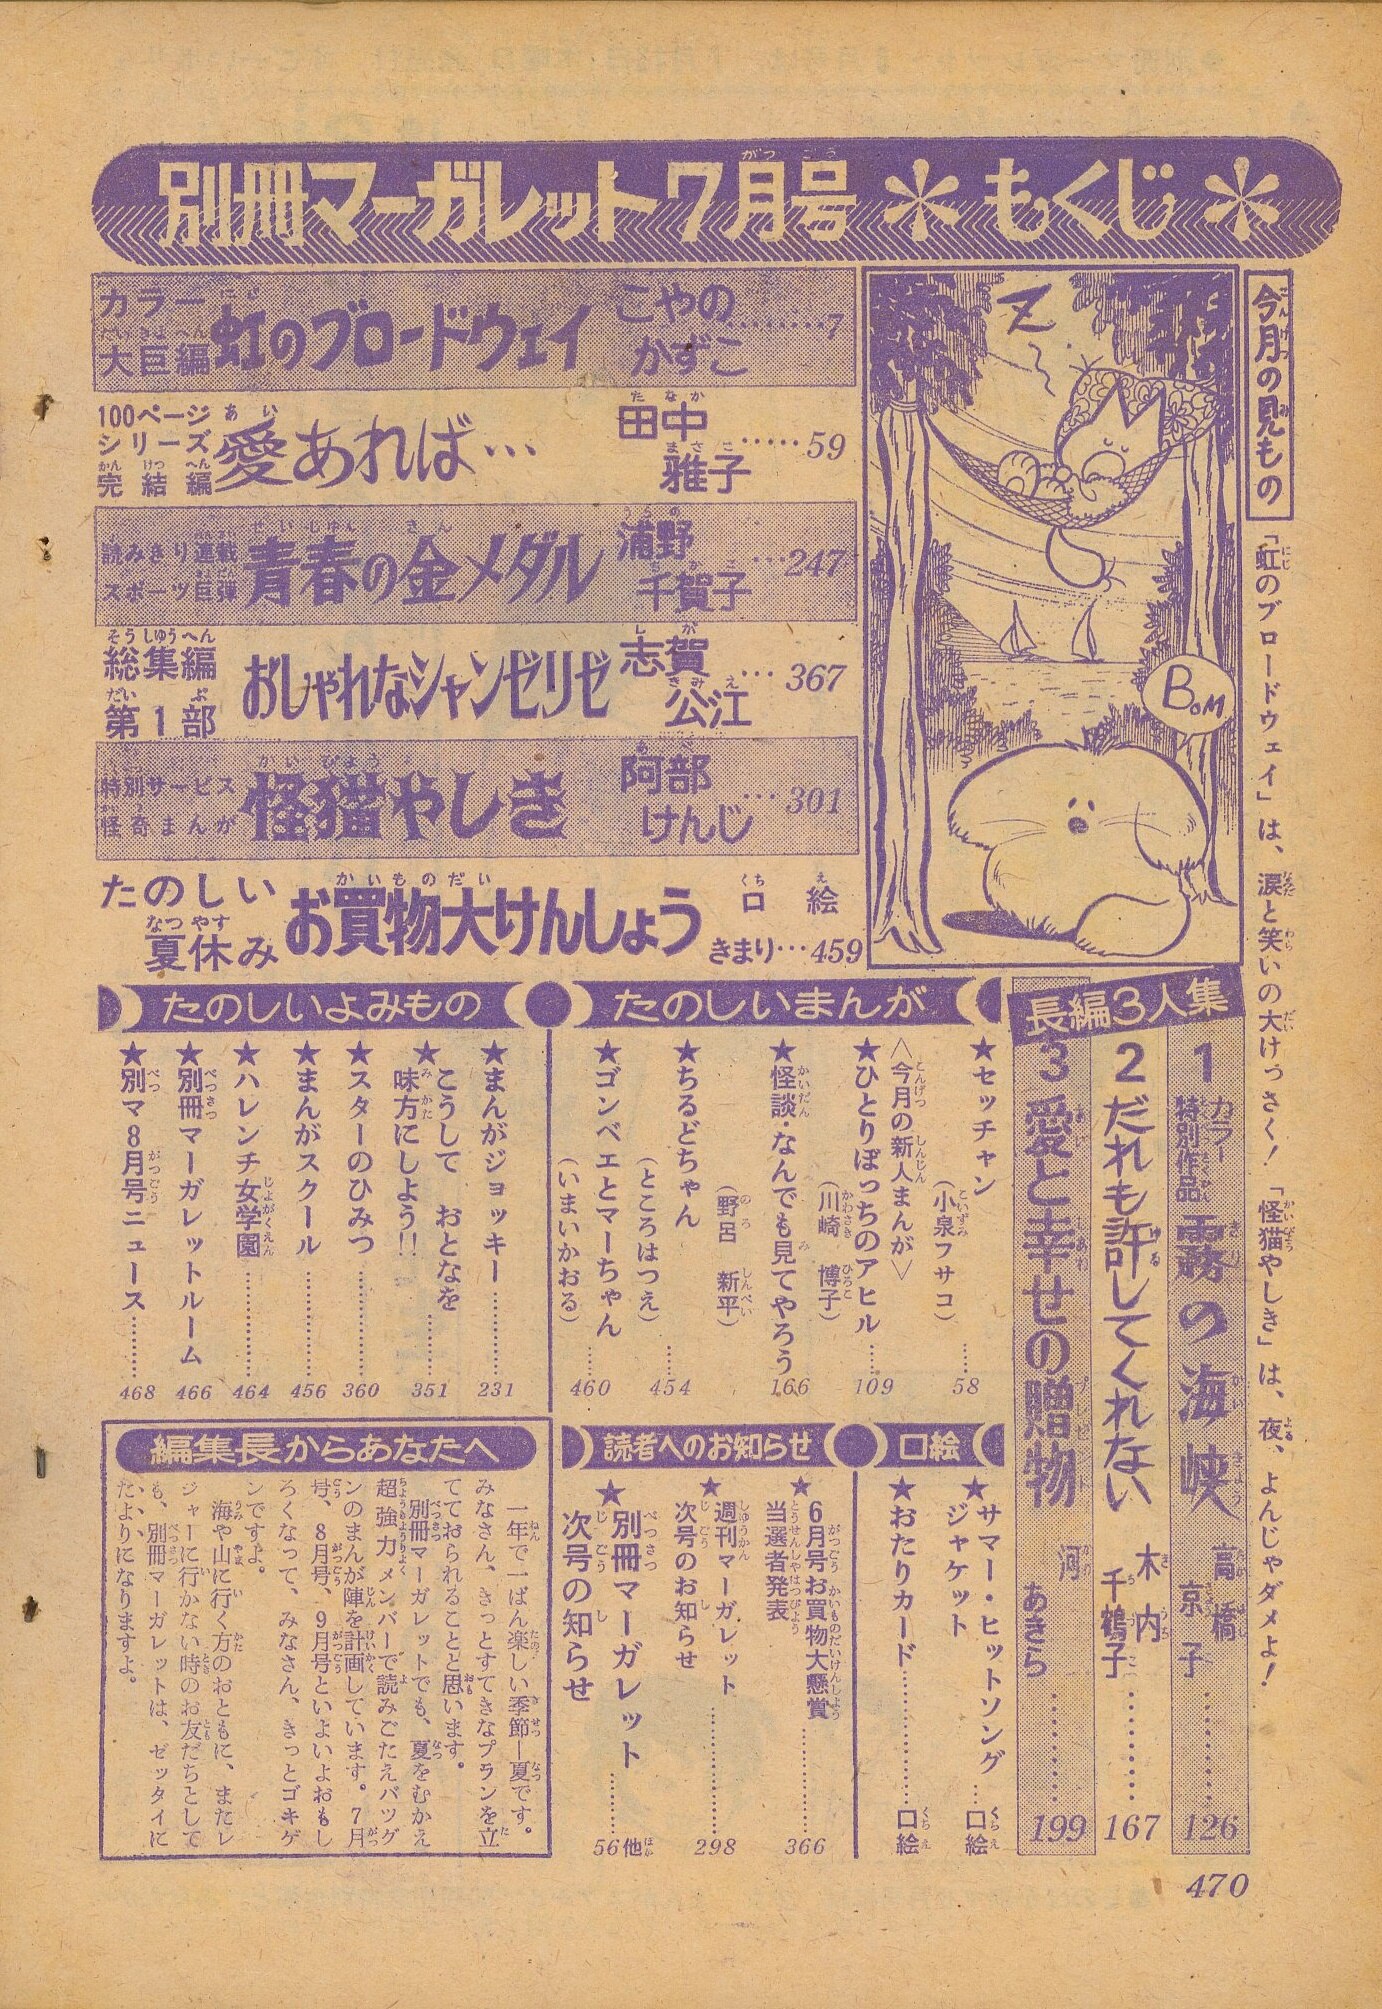 別冊マーガレット7月号＊もくじ＊
カラー
大巨編
虹のブロードウェイ
こやの
かずこ………7
100ページ
シリーズ
完結編
愛あれば…
田中
雅子……59
読みきり連載
スポーツ巨弾
青春の金メダル
浦野
千賀子…247
総集編
第1部
おしゃれなシャンゼリゼ
志賀
公江…367
特別サービス
怪奇まんが
怪猫やしき
阿部
けんじ…301
たのしい
夏休み
お買物大けんしょう
口絵
きまり…459
Z
BOM
今月の見もの
「虹のブロードウェイ」は、涙と笑いの大けっさく！「怪猫やしき」は、夜、よんじゃダメよ！
長編3人集
1 カラー
特別作品
霧の海峡
高橋
京子………126
2 だれも許してくれない
木内
千鶴子………167
3 愛と幸せの贈物
河
あきら………199
たのしいまんが
★セッチャン
（小泉フサコ）……58
〈今月の新人まんが〉
★ひとりぼっちのアヒル
（川崎 博子）……109
★怪談・なんでも見てやろう
（野呂 新平）166
★ちるどちゃん
（ところはつえ）……454
★ゴンベエとマーちゃん
（いまいかおる）……460
たのしいよみもの
★まんがジョッキー………231
★こうして おとなを
味方にしよう!!………351
★スターのひみつ………360
★まんがスクール………456
★ハレンチ女学園………464
★別冊マーガレットルーム 466
★別マ8月号ニュース………468
口絵
★サマー・ヒットソング
ジャケット…口絵
★おたりカード………口絵
読者へのお知らせ
★6月号お買物大懸賞
当選者発表………366
★週刊マーガレット
次号のお知らせ………298
★別冊マーガレット
次号の知らせ……56他
編集長からあなたへ
一年で一ばん楽しい季節―夏です。
みなさん、きっとすてきなプランを立
てておられることと思います。
別冊マーガレットでも、夏をむかえ
超強力メンバーで読みごたえバツグ
ンのまんが陣を計画しています。7月
号、8月号、9月号といよいよおもし
ろくなって、みなさん、きっとゴキゲ
ンですよ。
海や山に行く方のおともに、またレ
ジャーに行かない時のお友だちとして
も、別冊マーガレットは、ゼッタイに
たよりになりますよ。
470